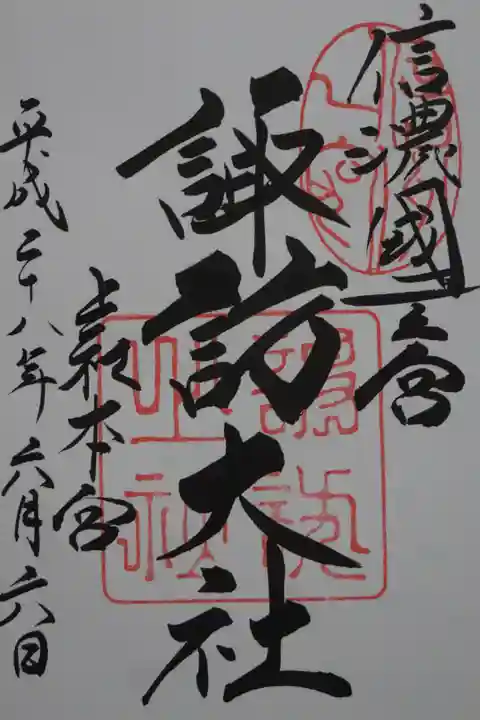 信濃國一之宮
諏訪大社
上社本宮
平成二十八年六月六日